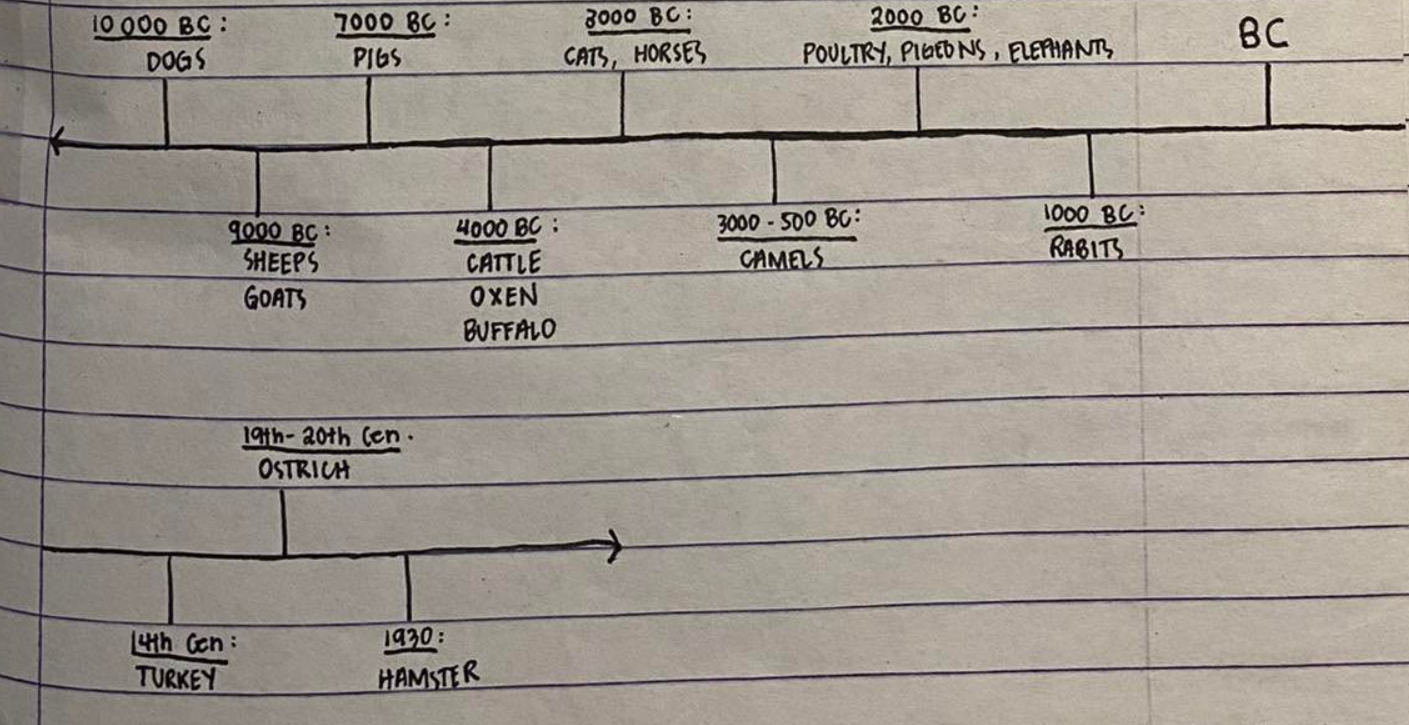 10 000 BC:
DOGS
7000 BC:
PIGS
3000 BC:
CATS, HORSES
2000 BC:
POULTRY, PIGEONS, ELEPHANTS
BC
9000 BC:
SHEEPS
GOATS
4000 BC:
CATTLE
OXEN
BUFFALO
3000-500 BC:
CAMELS
1000 BC:
RABITS
19th-20th Cen.
OSTRICH
14th Cen:
TURKEY
1930:
HAMSTER